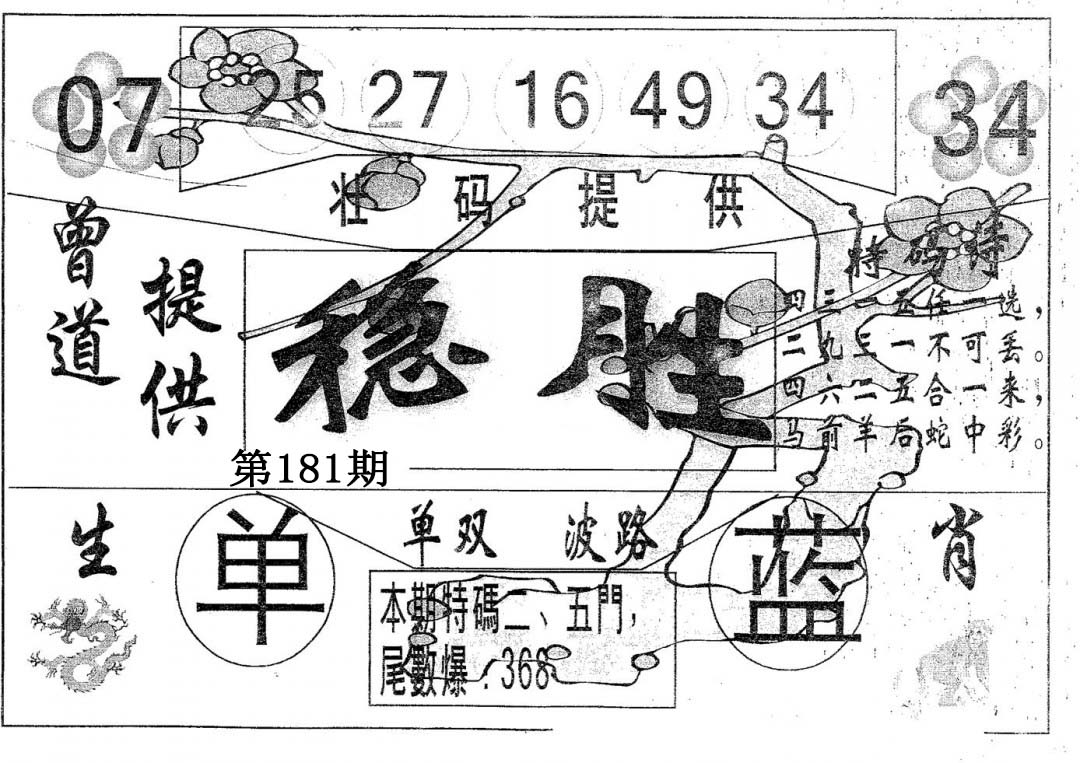 07 25 27 16 49 34 34
壮码提供
曾道
提供
稳胜
特码诗
四三一五任一选，
二九三一不可丢。
四六二五合一来，
马前羊后蛇中彩。
第181期
生
单
单双 波路
蓝
肖
本期特碼二、五門，
尾數爆：368